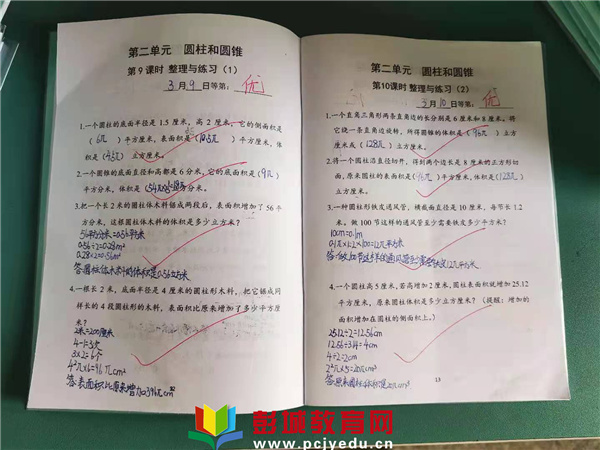 第二单元 圆柱和圆锥
第9课时 整理与练习（1）
3月9日等第：优
1.一个圆柱的底面半径是1.5厘米，高2厘米，它的侧面积是
（6π）平方厘米，表面积是（10.5π）平方厘米，体
积是（4.5π）立方厘米。
2.一个圆锥的底面直径和高都是6分米，它的底面积是（9π）
平方分米，体积是（ ）立方分米。
3.把一个长2米的圆柱体木料锯成两段后，表面积增加了56平
方分米，这根圆柱体木料的体积是多少立方米？
56平方分米=0.56平方米
0.56÷2=0.28m²
0.28×2=0.56m³
答:圆柱体木料的体积是0.56立方米
4.一根长2米，底面半径是4厘米的圆柱形木料，把它锯成同
样长的4段圆柱形的木料，表面积比原来增加了多少平方厘
米？
2米=200厘米
4-1=3次
3×2=6个
4²π×6=96πcm²
答:表面积比原来增加96πcm²
第二单元 圆柱和圆锥
第10课时 整理与练习（2）
3月10日等第：优
1.一个直角三角形两条直角边的长分别是6厘米和8厘米，将
它绕一条直角边旋转，所得圆锥的体积是（96π）立方
厘米或（128π）立方厘米。
2.将一个圆柱沿直径切开，得到两个边长是8厘米的正方形切
面，原来圆柱的表面积是（96π）平方厘米，体积是（128π）
立方厘米。
3.一种圆柱形铁皮通风管，横截面直径是10厘米，每节长1.2
米。做100节这样的通风管至少需要铁皮多少平方米？
10cm=0.1m
0.1π×1.2×100=12π平方米
答:做100节这样的通风管至少需要铁皮12π平方米
4.一个圆柱高5厘米，若高增加2厘米，圆柱表面积就增加25.12
平方厘米，原来圆柱体积是多少立方厘米？（提醒：增加的
面积增加在圆柱的侧面积上。）
25.12÷2=12.56cm
12.56÷3.14=4cm
4÷2=2cm
2²π×5=20πcm³
答:原来圆柱体积是20πcm³
13
彭城教育网
www.pcjyedu.cn